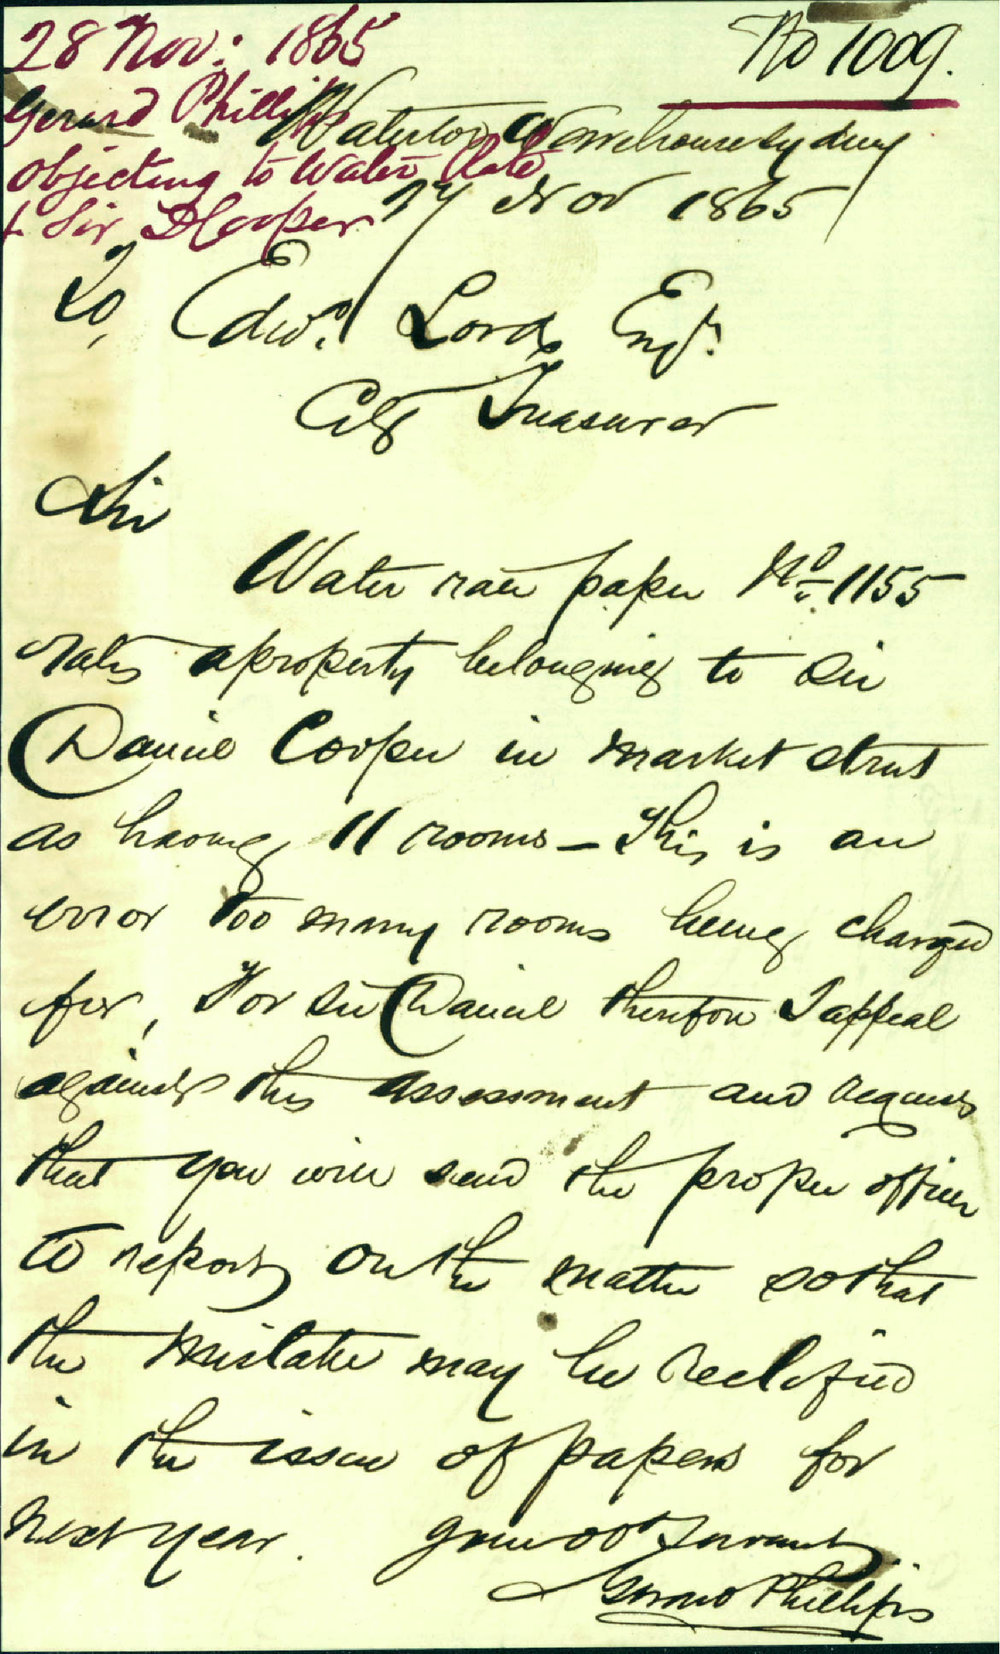 28 Nov: 1865
No 1009.
Gerard Phillips
Objecting to Water Rate
Sir D Cooper
Waterloo Warehouse Sydney
27 Nov 1865
To, Edwd. Lord, Esqr.
City Treasurer
Sir
Water rate paper No. 1155
rates a property belonging to Sir
Daniel Cooper in Market Street
as having 11 rooms – This is an
error too many rooms being charged
for, For Sir Daniel therefore I appeal
against this assessment and request
that you will send the proper officer
to report on the matter so that
the mistake may be rectified
in the issue of papers for
next year.
Your obt Servant
Gerard Phillips